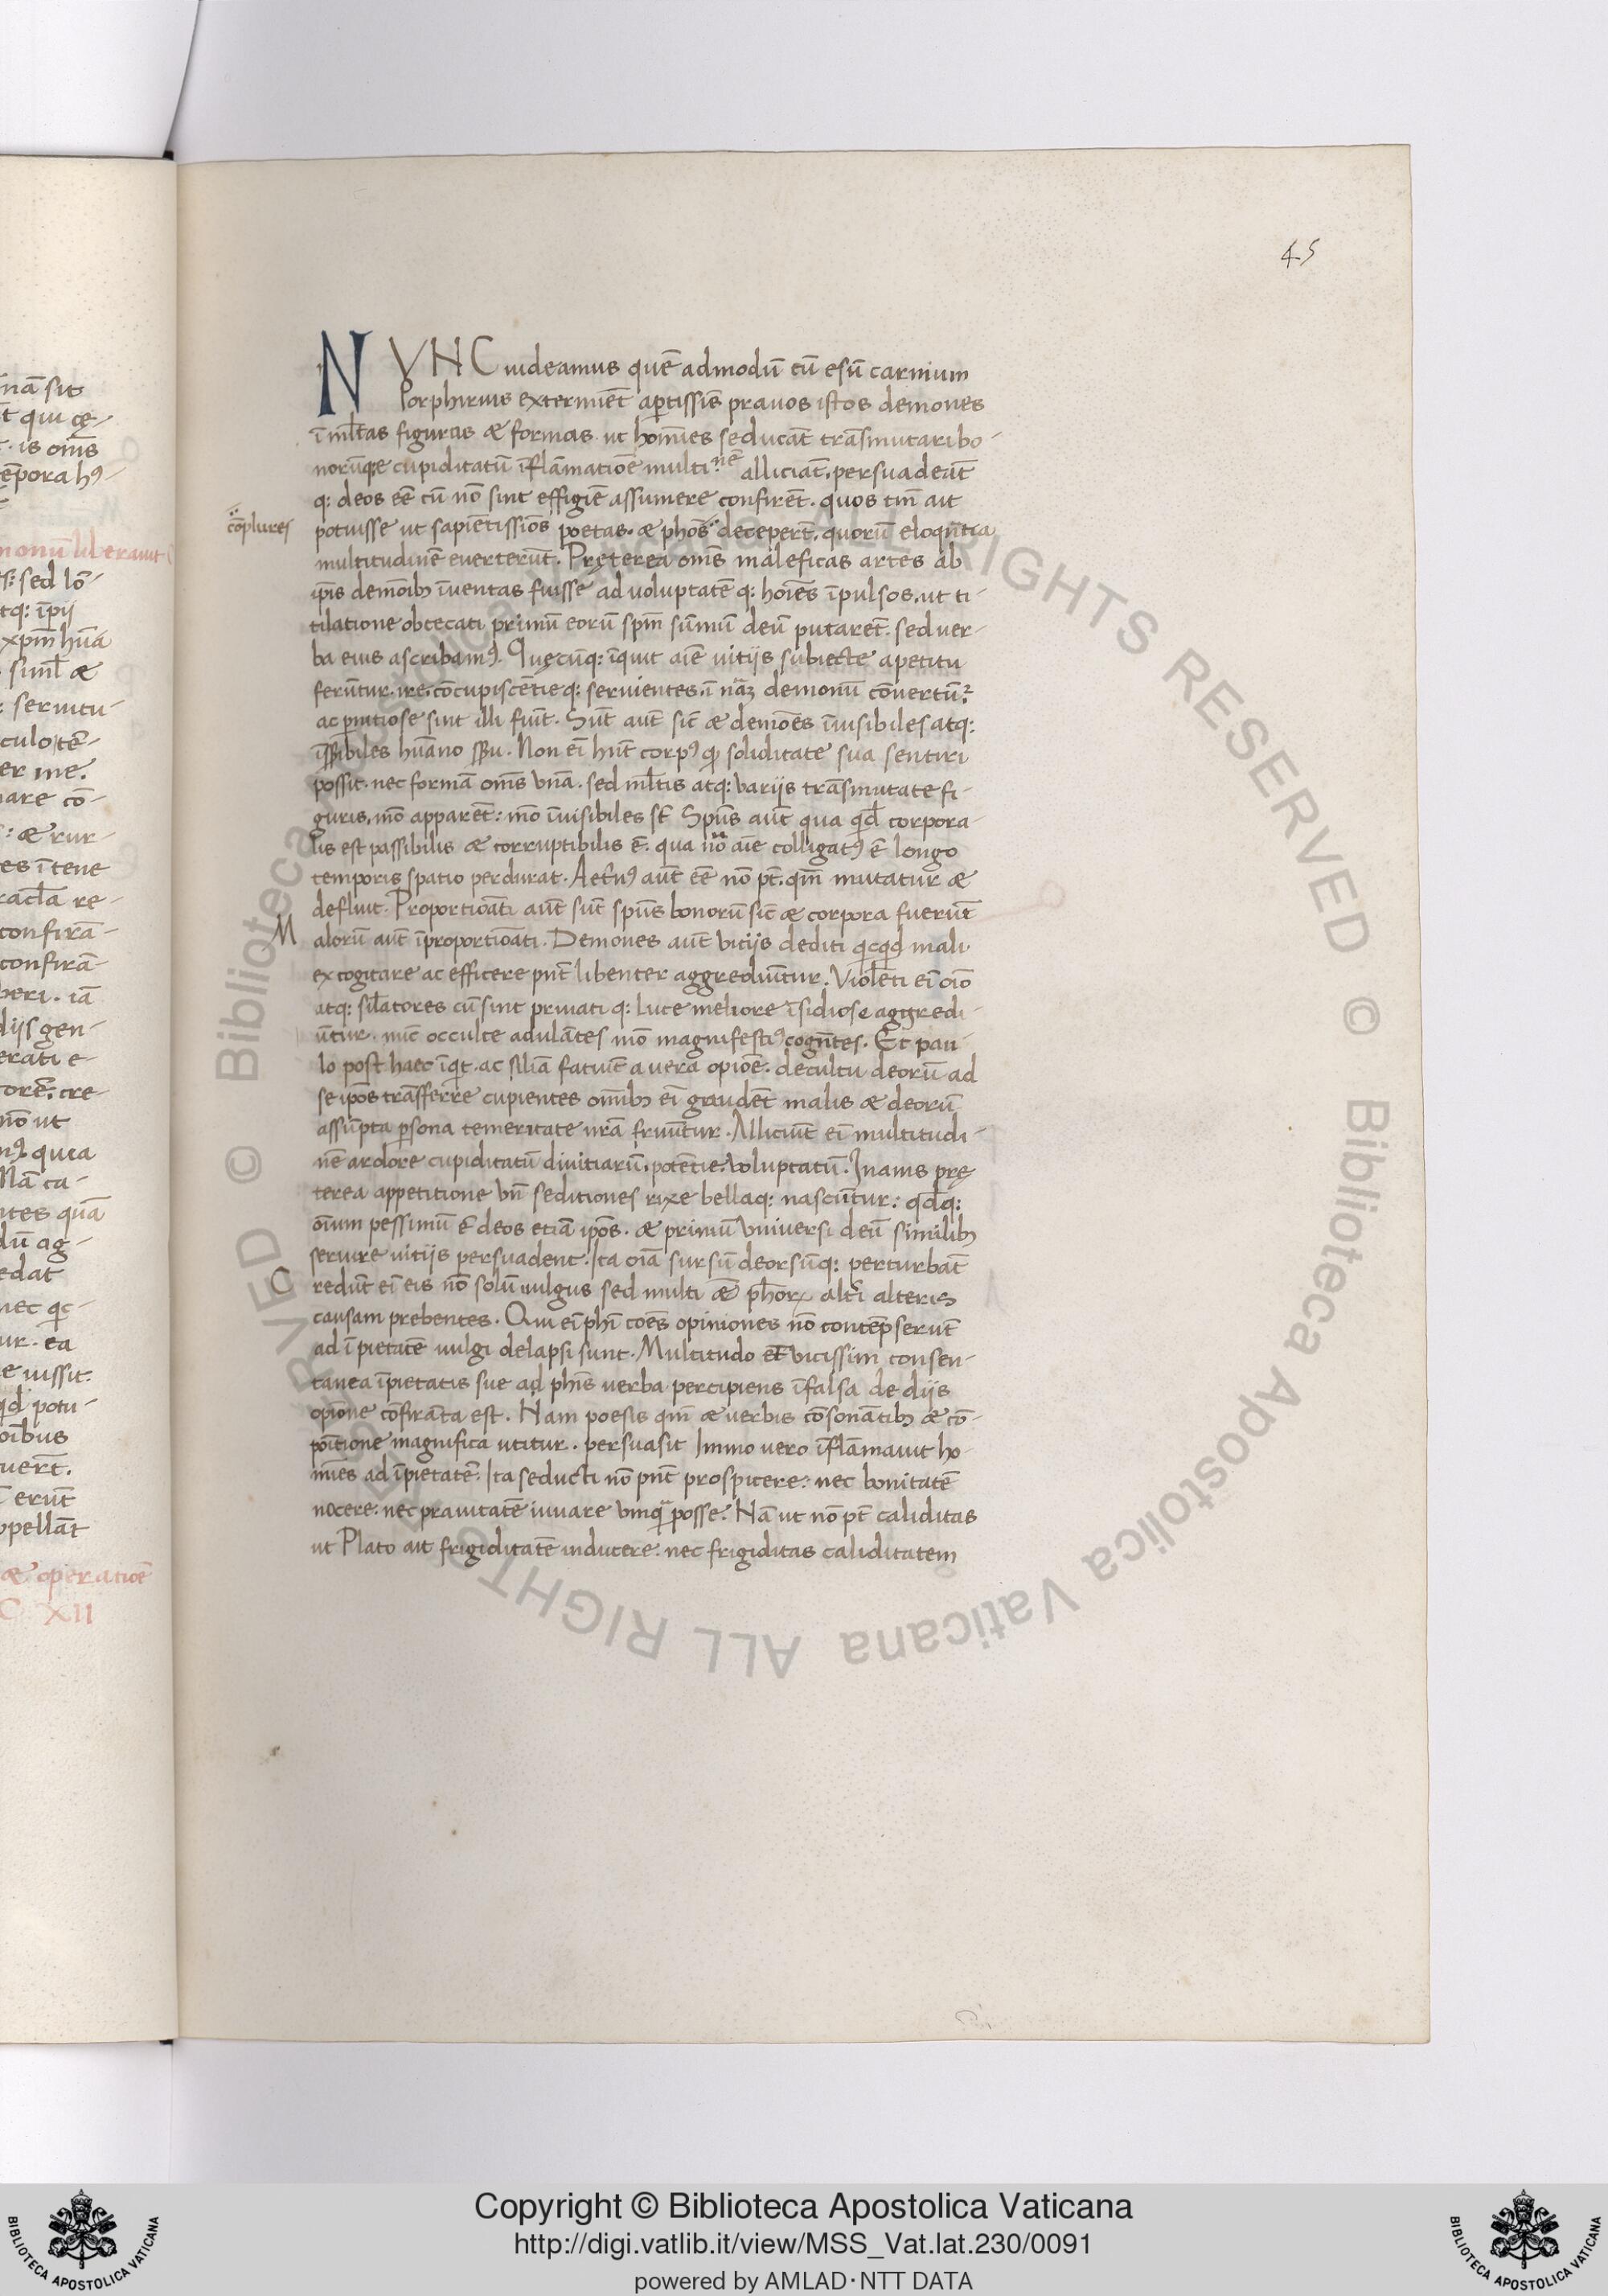 45
NVNC uideamus quē admodū cū esū carnium
Porphirius extermiēt aptissīe prauos istos demones
ī ml̄tas figuras & formas ut homīes seducāt trāsmutari bo-
norūqe cupiditatū īflāmatiōe multi nē alliciāt, persuadeāt
q: deos eē cū nō sint effigiē assumere confirēt. quos tm̄ ait
cōplures
potuisse ut sapiētissiōs poetas. & phōs deceperēt, quorū eloqn̄tia
multitudinē euerterūt. Pręterea oms̄ maleficas artes ab
ip̄is demōib; īuentas fuisse ad uoluptatē q: hoīes īpulsos, ut ti-
tilatione obcecati primū eorū spm̄ sūmū deū putarēt. sed uer-
ba eius ascribam9. Quęcūq: īquit aīe uitijs subiecte apetitu
ferūntur. ire. cōcupiscētie q: seruientes, ī nāz demonū cōuertū2
ac pnitiose sint illi fuīt. Sūt aūt sic̄ & demōes īuisibiles atq:
īssibiles hūano ssu. Non eī hnt̄ corp9 qđ soliditate sua sentiri
possit. nec formā oms̄ vnā. sed ml̄tis atq: varijs trāsmutate fi-
guris, mō apparēt: mō īuisibiles st̄ Spūs aūt qua qđ corpora-
lis est passibilis & corruptibilis ē. qua nō aīe colligat9 ē longo
temporis spatio perdurat. Aetn9 aūt eē nō pt̄. qm̄ mutatur &
defluit. Proportiōati aūt sūt spūs bonorū sic̄ & corpora fuerūt
M
alorū aūt īproportiōati. Demones aūt vitijs dediti qcqđ mali
excogitare ac efficere pnt̄ libenter aggrediūtur. Violēti eī oīo
atq: sil̄atores cū sint priuati q: luce meliore īsidiose aggredi-
ūtur. nūc occulte adulātes mō magnifesti9 cogn̄tes. Et pau-
lo post haec īqt. ac siliā fatuīe a uera opiōe. de cultu deorū ad
se ipōs trāsferre cupientes omib; eī gaudēt malis & deorū
assūpta psona temeritate nrā fruūtur. Alliciūt eī multitudi-
nē ardore cupiditatū diuitiarū, potētie, voluptatū. Inanis prę
terea appetitione vn̄ seditiones rixe bellaq: nascūtur: qđq:
oīum pessimū ē deos etiā ipōs. & primū vniuersi deū similib;
seruire uitijs persuadent. Ita oīa sursū deorsūq: perturbāt
C
redūt eī eis nō solū uulgus sed multi & phōr alti alteris
causam prebentes. Qui eī phī coēs opiniones nō contēpserūt
ad īpietatē uulgi delapsi sunt. Multitudo et̄ vicissim consen-
tanea īpietatis sue ad phīs verba percipiens ī falsa de dijs
opiōne cōfirāta est. Nam poesis qm̄ & verbis cōsonātib; & cō-
pōitione magnifica utitur. persuasit Immo uero īflāmauit ho-
mīes ad īpietatē. Ita seducti nō pnt̄ prospicere: nec bonitatē
nocere: nec prauitatē iuuare vnq̄ posse. Nā ut nō pt̄ caliditas
ut Plato ait frigiditatē inducere: nec frigiditas caliditatem
Copyright © Biblioteca Apostolica Vaticana
http://digi.vatlib.it/view/MSS_Vat.lat.230/0091
powered by AMLAD·NTT DATA